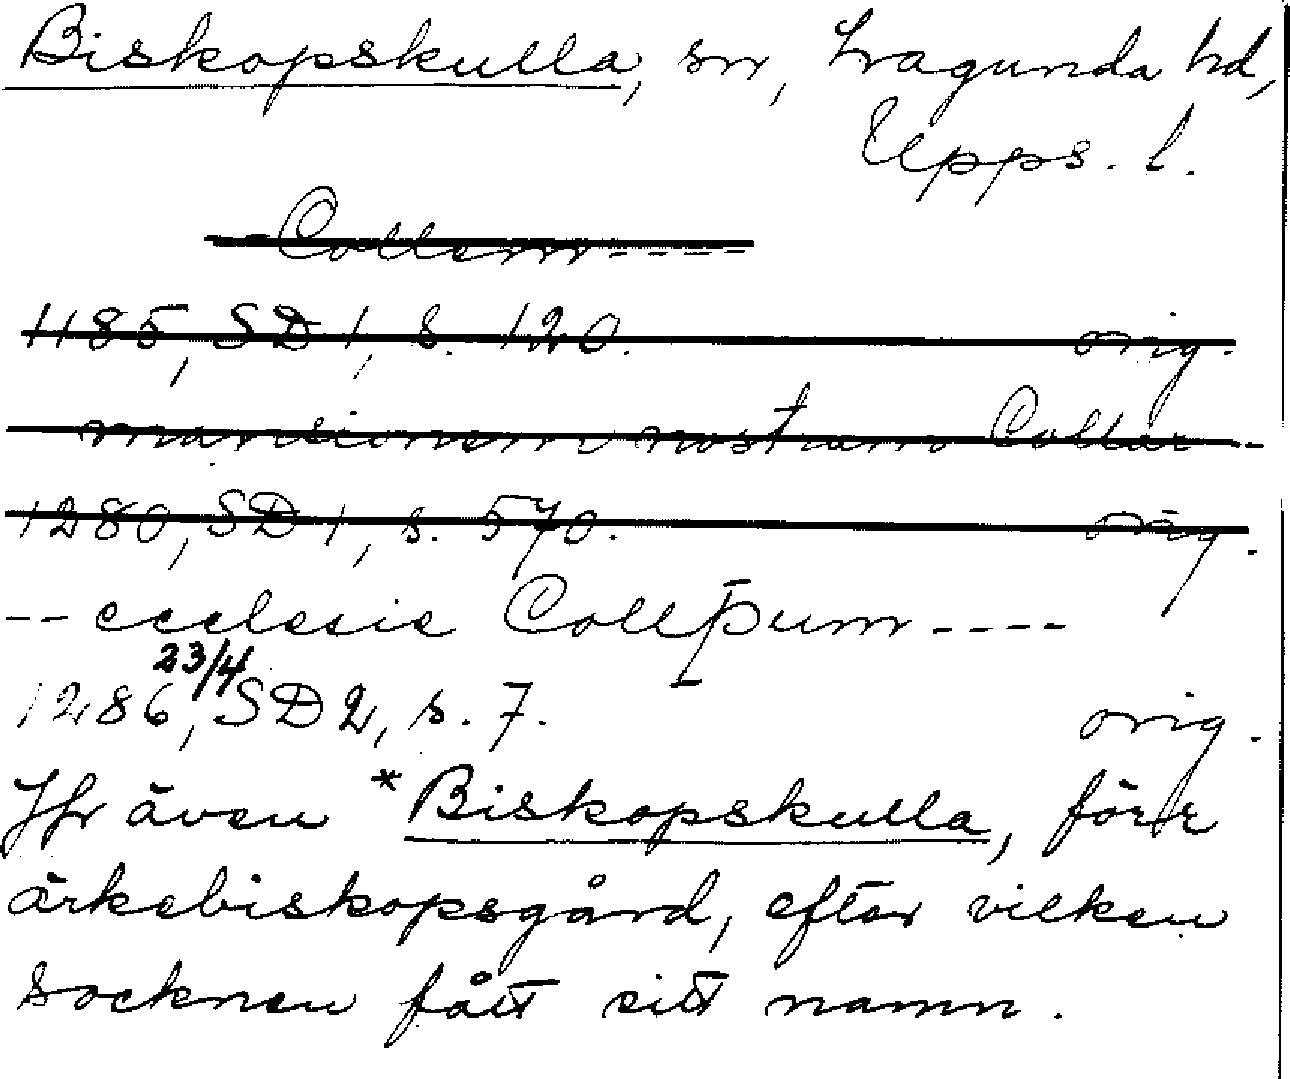 Biskopskulla, sn, Lagunda hd,
Upps. l.
-- Collem ----
1185, SD 1, s. 120. orig.
mansionem nostram Collar --
1280, SD 1, s. 570. orig.
-- ecclesie Collꝑum ----
1286, 23/4 SD 2, s. 7. orig.
Jfr även *Biskopskulla, förr
ärkebiskopsgård, efter vilken
socknen fått sitt namn.